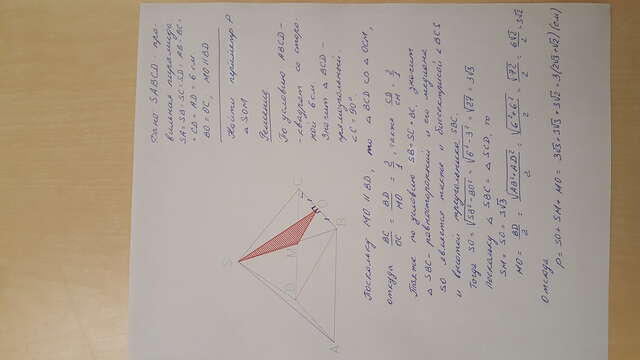 Дано SABCD - пра-
вильная пирамида
SA = SB = SC = SD = AB = BC =
= CD = AD = 6 см
BO = OC, MO || BD
Найти периметр P
△ SOM
Решение
По условию ABCD -
- квадрат со сторо-
ной 6 см.
Значит △ BCD -
прямоугольный.
∠C = 90°.
S
D
M
C
O
A
B
Поскольку MO || BD, то △ BCD ∽ △ OCM,
откуда BC/OC = BD/MO = 2/1, также CD/CM = 2/1
Также по условию SB = SC = BC, значит
△ SBC - равносторонний и его медиана
SO является также и биссектрисой ∠ BCS
и высотой треугольника SBC.
Тогда SO = √(SB² - BO²) = √(6² - 3²) = √27 = 3√3
Поскольку △ SBC = △ SCD, то
SM = SO = 3√3
MO = BD/2 = √(AB² + AD²)/2 = √(6² + 6²)/2 = √72/2 = 6√2/2 = 3√2
Отсюда
P = SO + SM + MO = 3√3 + 3√3 + 3√2 = 3(2√3 + √2) (см)